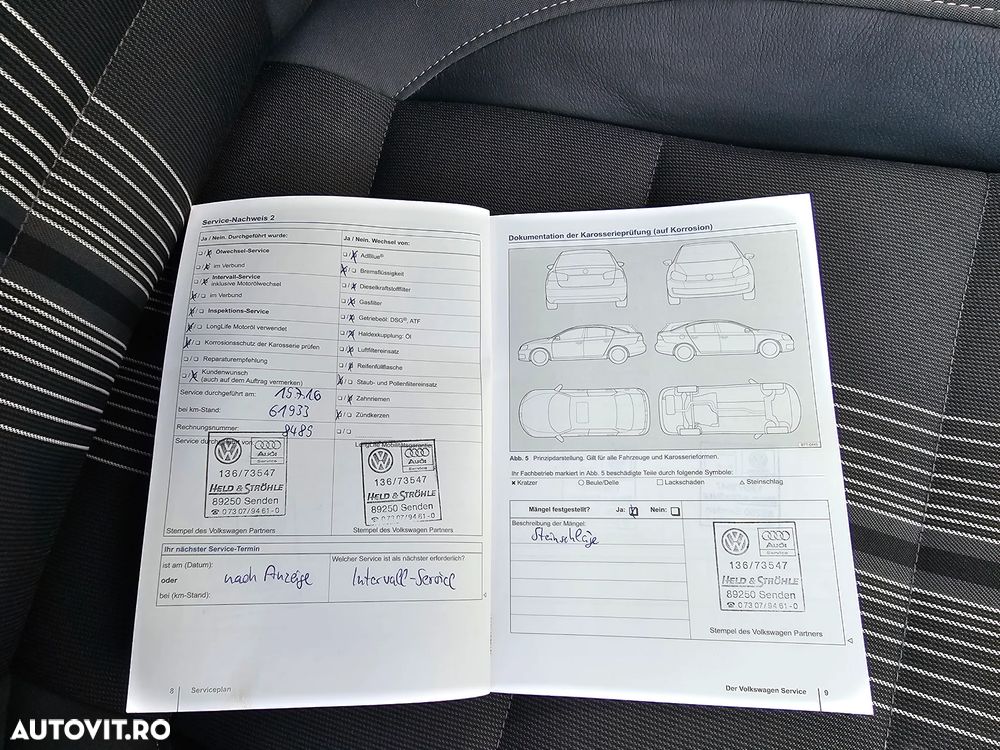 Service-Nachweis 2
Ja / Nein. Durchgeführt wurde:
Ölwechsel-Service
im Verbund
Intervall-Service
inklusive Motorölwechsel
im Verbund
Inspektions-Service
LongLife Motoröl verwendet
Korrosionsschutz der Karosserie prüfen
Reparaturempfehlung
Kundenwunsch
(auch auf dem Auftrag vermerken)
Service durchgeführt am: 15.7.16
bei km-Stand: 61933
Rechnungsnummer: 9489
Service durchgeführt von
Audi
Service
136/73547
HELD & STRÖHLE
89250 Senden
☎ 07307/9461-0
Stempel des Volkswagen Partners
Ja / Nein. Wechsel von:
AdBlue®
Bremsflüssigkeit
Dieselkraftstofffilter
Gasfilter
Getriebeöl: DSG®, ATF
Haldexkupplung: Öl
Luftfiltereinsatz
Reifenfüllflasche
Staub- und Pollenfiltereinsatz
Zahnriemen
Zündkerzen
LongLife Mobilitätsgarantie
Audi
Service
136/73547
HELD & STRÖHLE
89250 Senden
☎ 07307/9461-0
Stempel des Volkswagen Partners
Ihr nächster Service-Termin
ist am (Datum):
oder
bei (km-Stand):
nach Anzeige
Welcher Service ist als nächster erforderlich?
Intervall-Service
8 Serviceplan
Dokumentation der Karosserieprüfung (auf Korrosion)
Abb. 5 Prinzipdarstellung. Gilt für alle Fahrzeuge und Karosserieformen.
Ihr Fachbetrieb markiert in Abb. 5 beschädigte Teile durch folgende Symbole:
Kratzer Beule/Delle Lackschaden Steinschlag
Mängel festgestellt? Ja: Nein:
Beschreibung der Mängel:
Steinschläge
Audi
Service
136/73547
HELD & STRÖHLE
89250 Senden
☎ 07307/9461-0
Stempel des Volkswagen Partners
Der Volkswagen Service 9
AUTOVIT.RO